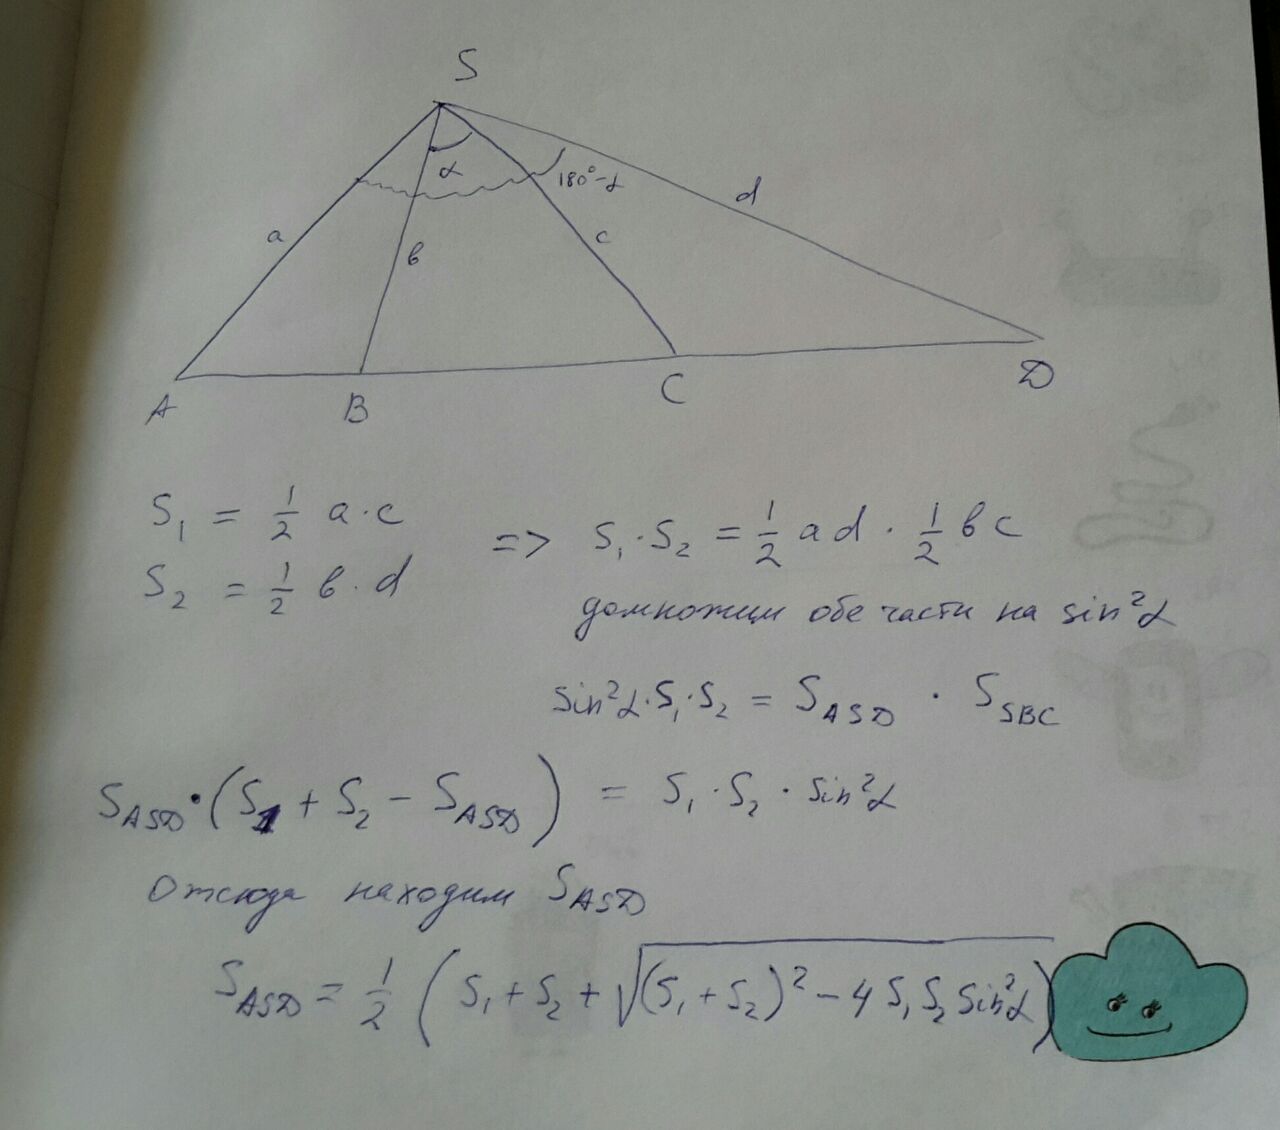 S
α
180°-α
a
в
c
d
A
B
C
D
S₁ = 1/2 a·c
S₂ = 1/2 в·d
=> S₁·S₂ = 1/2 ad · 1/2 вc
домножим обе части на sin²α
sin²α·S₁·S₂ = S_ASD · S_SBC
S_ASD·(S₁ + S₂ - S_ASD) = S₁·S₂·sin²α
Отсюда находим S_ASD
S_ASD = 1/2 (S₁ + S₂ + √((S₁ + S₂)² - 4 S₁ S₂ sin²α))